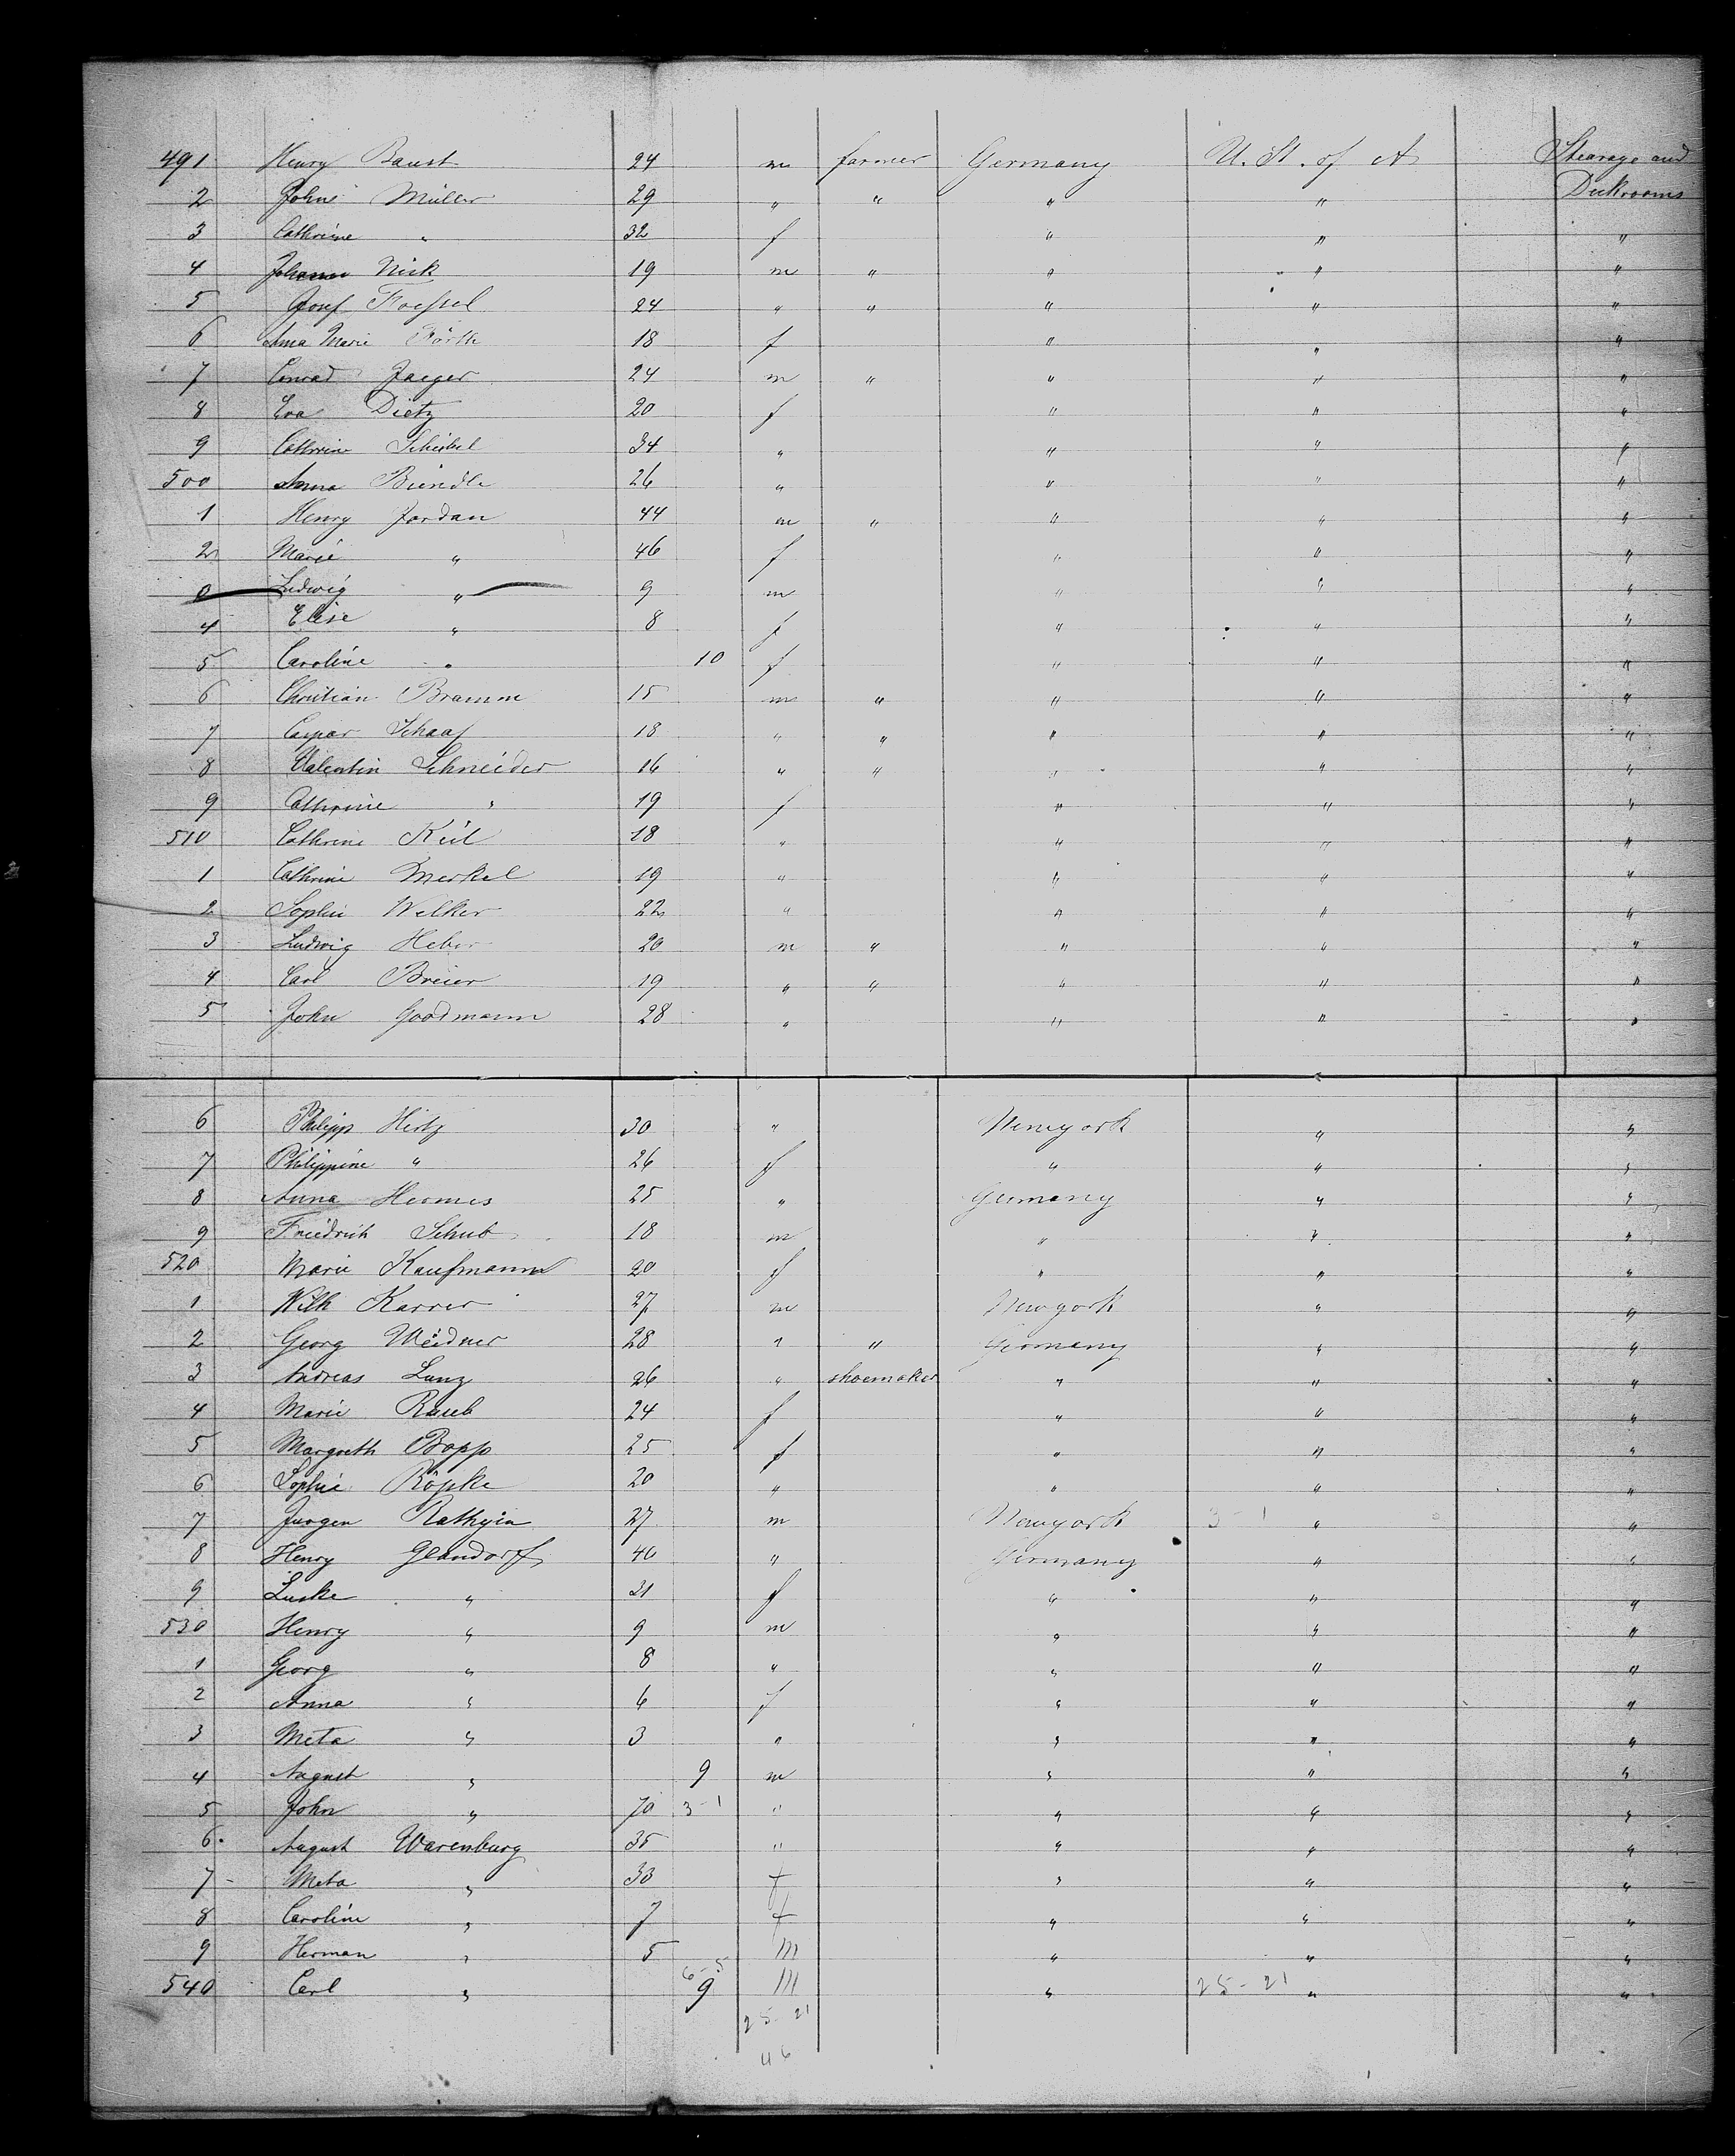 491 Henry Baust 24 m farmer Germany U. St. of A Stearage and
2 John Müller 29 " " " " Deckrooms
3 Cathrine " 32 f " " "
4 Nick 19 m " " " "
5 Josef Foessel 24 " " " " "
6 Anna Marie 18 f " " "
7 Conrad Jaeger 24 m " " " "
8 Eva Dietz 20 f " " "
9 Cathrine Scheibel 34 " " " "
500 Anna Biendle 26 " " " "
1 Henry Jordan 44 m " " " "
2 Marie " 46 f " " "
Ludwig " 9 m " " "
4 Elise " 8 f " " "
5 Caroline " 10 f " " "
6 Christian Bramm 15 m " " " "
7 Caspar Schaaf 18 " " " " "
8 Valentin Schneider 16 " " " " "
9 Cathrine " 19 f " " "
510 Cathrine Keil 18 " " " "
1 Cathrine Merkel 19 " " " "
2 Sophie Welker 22 " " " "
3 Ludwig Heber 20 m " " " "
4 Carl Breier 19 " " " " "
5 John Goodmann 28 " " " "
6 Philipp Hirtz 30 " Newyork " "
7 Philippine " 26 f " " "
8 Anna Hermes 25 " Germany " "
9 Friedrich Schub 18 m " " "
520 Marie Kaufmann 20 f " " "
1 Wilh Karrer 27 m Newyork " "
2 Georg Weidner 28 " " Germany " "
3 Andreas Lunz 26 " shoemaker " " "
4 Marie Raub 24 f " " "
5 Margreth Bopp 25 f " " "
6 Sophie Röpke 20 " " " "
7 Jurgen Rathyin 27 m Newyork 3-1 " "
8 Henry Glandorf 40 " Germany " "
9 Luske " 31 f " " "
530 Henry " 9 m " " "
1 Georg " 8 " " " "
2 Anna " 6 f " " "
3 Meta " 3 " " " "
4 August " 9 m " " "
5 John " 70 3-1 " " " "
6. August Warenburg 35 " " " "
7 - Meta " 33 f " " "
8 Caroline " 7 f " " "
9 Herman " 5 m " " "
6-5
540 Carl " 9 m " 25-21 " "
25-21
46